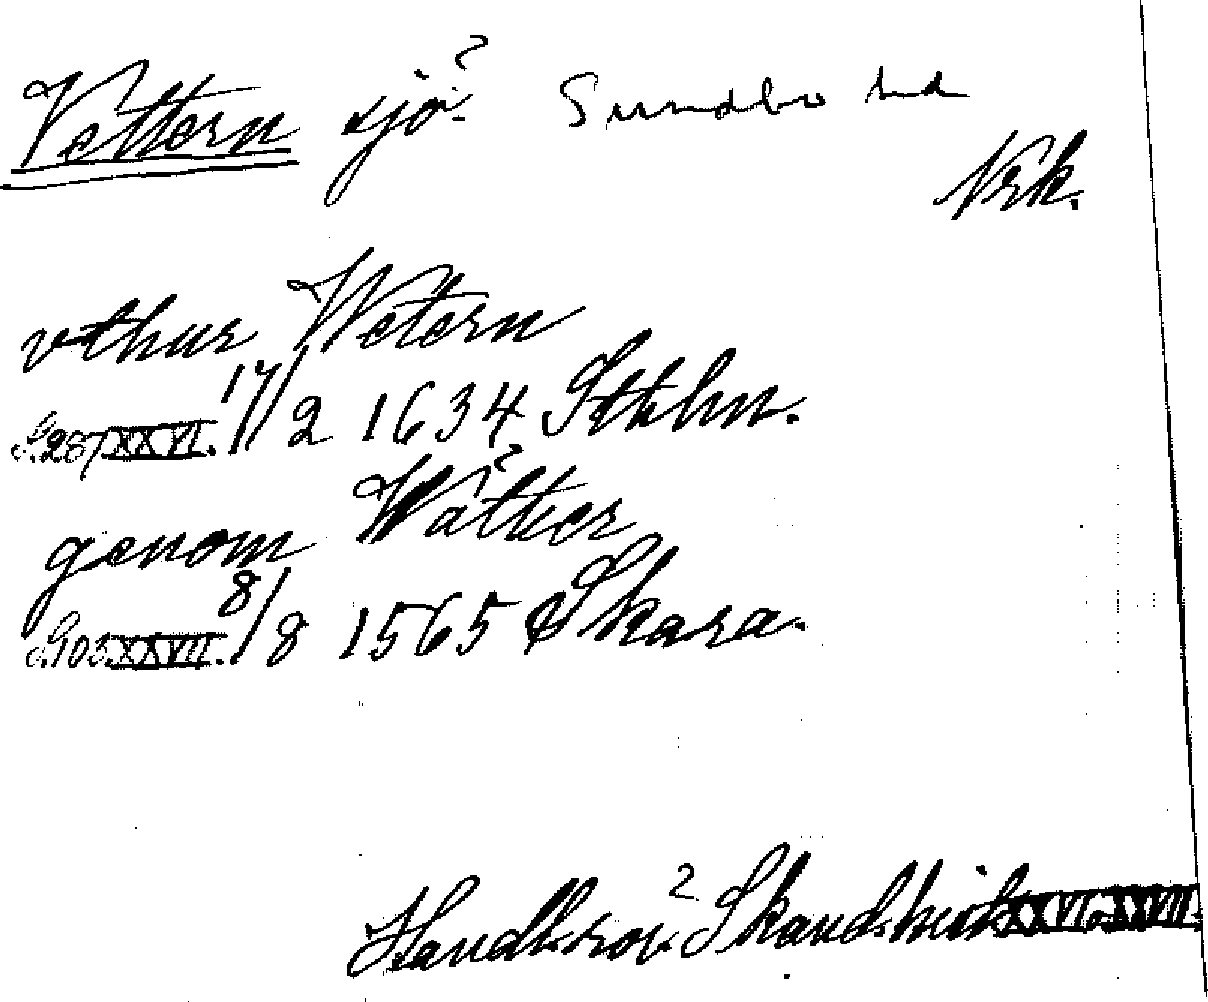 Vettern sjö Sundbo hd
Nrk.
vthur Wetern
S. 287 XXVI. 17/2 1634 Sthlm.
genom Wätter
S. 103 XXVII. 8/8 1565 Skara.
Handl. rör. Skand. hist. XXVI o. XXVII.